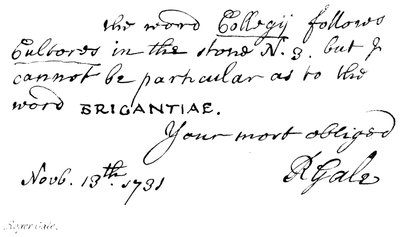 the word Collegij follows
Cultores in the stone N. 3. but I
cannot be particular as to the
word BRIGANTIAE.
Your most obliged
RGale
Novb. 13th. 1731
Roger Gale.